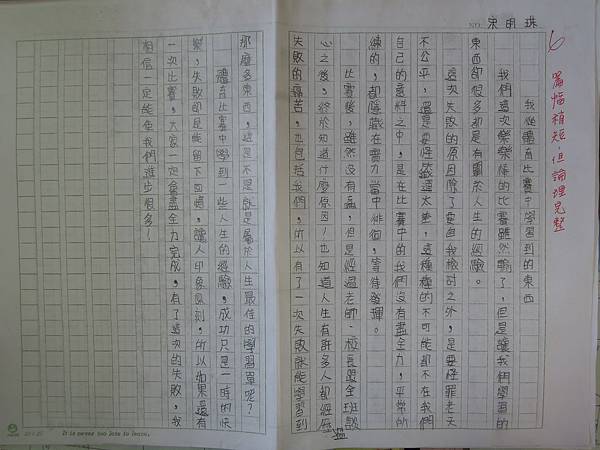 NO.
宋明珠
6
篇幅稍短,但論理完整
我從體育比賽中學習到的東西
我們這次樂樂棒的比賽雖然輸了,但是讓我們學習的
東西卻很多都是有關於人生的經驗。
這次失敗的原因除了要自我檢討之外,是要怪罪老天
不公平,還是要怪破運太差,這種種的不可能都不在我們
自己的意料之中,是在比賽中的我們沒有盡全力,平常所
練的,都隱藏在實力當中徘徊,等待發揮。
比賽後,雖然沒有贏,但是經過老師、校長跟全班談
心之後,終於知道什麼原因!也知道人生有許多人都經歷過
失敗的痛苦,也包括我們,所以有了一次失敗就能學習到
那麼多東西,這是不是就是屬於人生最佳的學習單呢?
體育比賽中學到一些人生的經驗,成功只是一時的快
樂,失敗卻是能留下回憶,讓人印象深刻,所以如果還有
一次比賽,大家一定會盡全力完成,有了這次的失敗,我
相信一定能使我們進步很多!
It is never too late to learn.